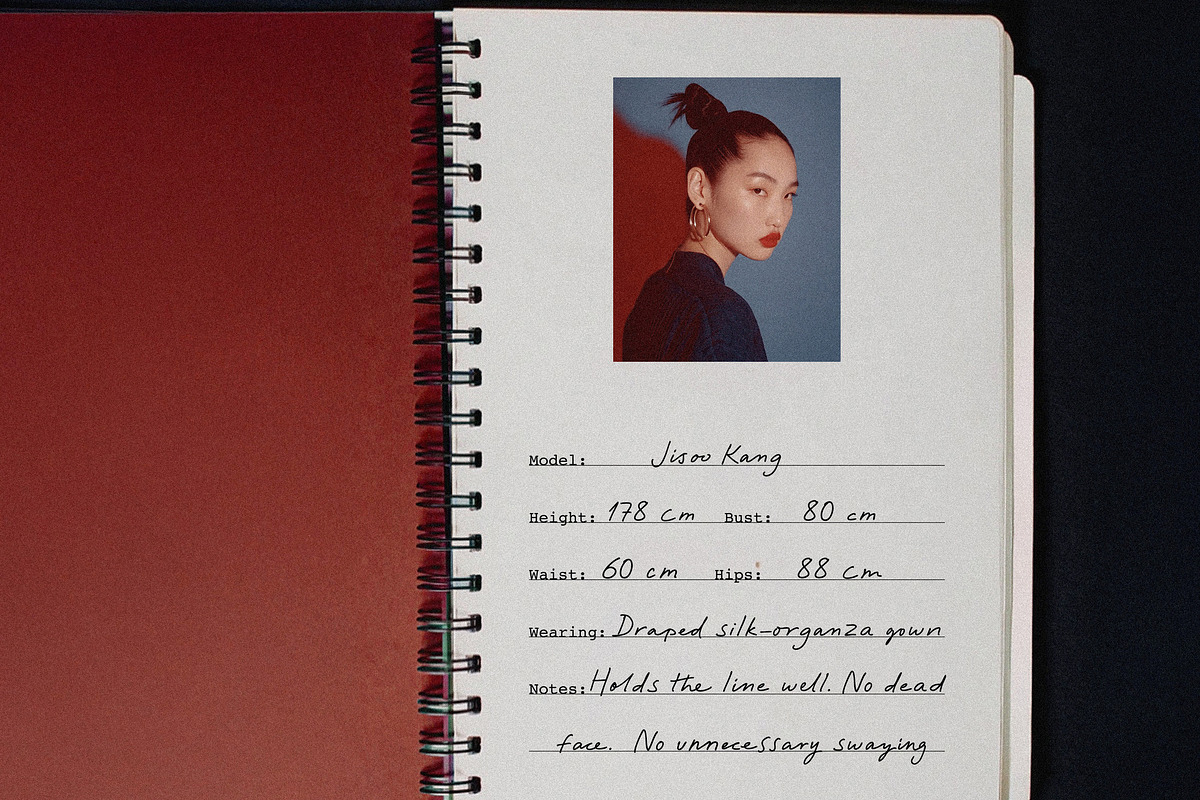 Model: Jisoo Kang
Height: 178 cm Bust: 80 cm
Waist: 60 cm Hips: 88 cm
Wearing: Draped silk-organza gown
Notes: Holds the line well. No dead
face. No unnecessary swaying